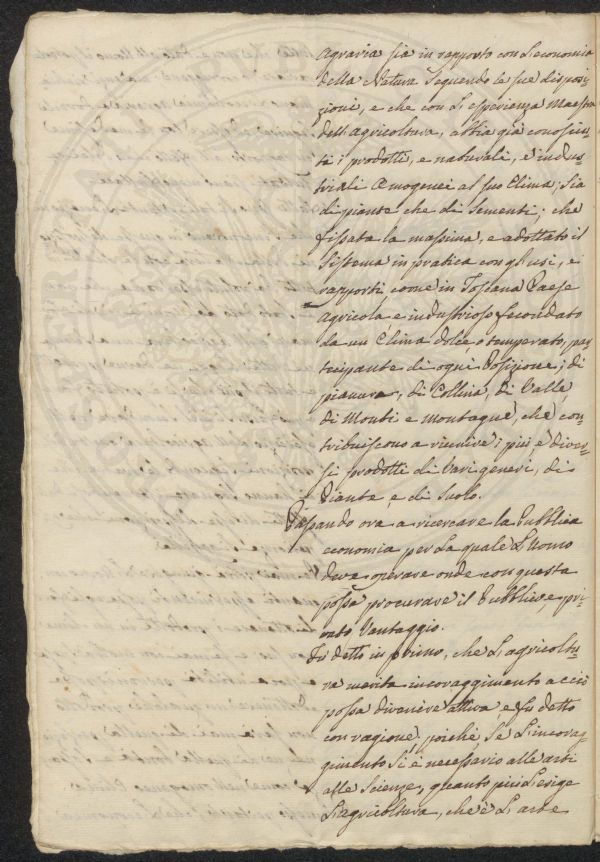 Agraria sia in rapporto con L'economia
della Natura seguendo le sue disposi-
zioni, e che con L'esperienza Maestra
dell'agricoltura, abbia già conosciu-
ti i prodotti, e naturali, e indus-
triali omogenei al suo Clima; Sia
di piante che di Sementi; che
fissata la massima, e adottato il
Sistema in pratica con gl'usi, e
rapporti come in Toscana Paese
Agricola e industrioso fecondato
da un Clima dolce e temperato, par
tecipante di ogni Posizione, di
pianura, di Collina, di Valle,
di Monti e Montagne, che con-
tribuiscono a riunire i più, e diver-
si prodotti di Vari generi, di
Piante, e di Suolo.
Passando ora a ricercare la Pubblica
economia per la quale L'Uomo
deva operare onde con questa
possa procurare il Pubblico, e pri-
vato Vantaggio.
Fù detto in primo, che L'agricoltu-
ra merita incoraggimento acciò
possa divenire attiva e fu detto
con ragione; poiché, se L'incorag-
gimento si è necessario alle arti
alle Scienze, quanto più L'esige
L'agricoltura, che è L'arte